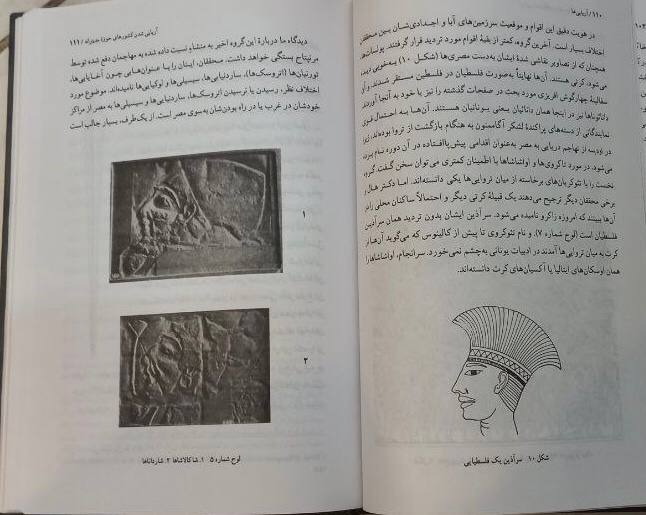 ۱۱۰ / آریایی‌ها
در هویت دقیق این اقوام و موقعیت سرزمین‌های آبا و اجدادی‌شان بین محققان
اختلاف بسیار است. آخرین گروه، کمتر از بقیهٔ اقوام مورد تردید قرار گرفتند. پولسات‌ها
همچنان که از تصاویر نقاشی شدهٔ ایشان به‌دست مصری‌ها (شکل ۱۰) به‌خوبی دیده
می‌شود، کرتی هستند. آن‌ها نهایتاً به‌صورت فلسطیان در فلسطین مستقر شدند و آن
سفالینهٔ چهارگوش افریزی مورد بحث در صفحات گذشته را نیز با خود به آنجا آوردند.
دانائوناها نیز در اینجا همان دانائیان یعنی یونانیان هستند. آن‌ها به احتمال قوی
نمایندگانی از دسته‌های پراکندهٔ لشکر آگاممنون به هنگام بازگشت از تروا بوده‌اند،
در اودیسه از تهاجم دریایی به مصر به‌عنوان اقدامی پیش‌پاافتاده در آن دوره نام برده
می‌شود. در مورد تاکروی‌ها و اواشاشاها با اطمینان کمتری می‌توان سخن گفت. گروه
نخست را با تئوکریان برخاسته از میان تروایی‌ها یکی دانسته‌اند. اما دکتر هال و
برخی محققان دیگر ترجیح می‌دهند یک قبیلهٔ کرتی دیگر و احتمالاً ساکنان محلی را در
آن‌ها ببینند که امروزه زاکرو نامیده می‌شود. سرآذین ایشان بدون تردید همان سرآذین
فلسطیان است (لوح شماره ۷). و نام تئوکروی تا پیش از کالینوس که می‌گوید آن‌ها از
کرت به میان تروایی‌ها آمدند در ادبیات یونانی به‌چشم نمی‌خورد. سرانجام، اواشاشاها را
همان اوسکان‌های ایتالیا یا آکسیان‌های کرت دانسته‌اند.
شکل ۱۰. سرآذین یک فلسطیایی
آریایی شدن کشورهای حوزهٔ مدیترانه / ۱۱۱
دیدگاه ما دربارهٔ این گروه اخیر به منشأ نسبت داده شده به مهاجمان دفع شده توسط
مرنپتاح بستگی خواهد داشت. محققان، اینان را با عنوان‌هایی چون آخایایی‌ها،
تورنیان‌ها (اتروسک‌ها)، ساردنیایی‌ها، سیسیلی‌ها و لوکیایی‌ها نامیده‌اند. موضوع مورد
اختلاف نظر، رسیدن یا نرسیدن اتروسک‌ها، ساردنیایی‌ها و سیسیلی‌ها به مصر از مراکز
خودشان در غرب یا در راه بودن‌شان به‌سوی مصر است. از یک‌طرف، بسیار جالب است
۱
۲
لوح شماره ۵ ۱. شاکالاشاها ۲. شاردناها